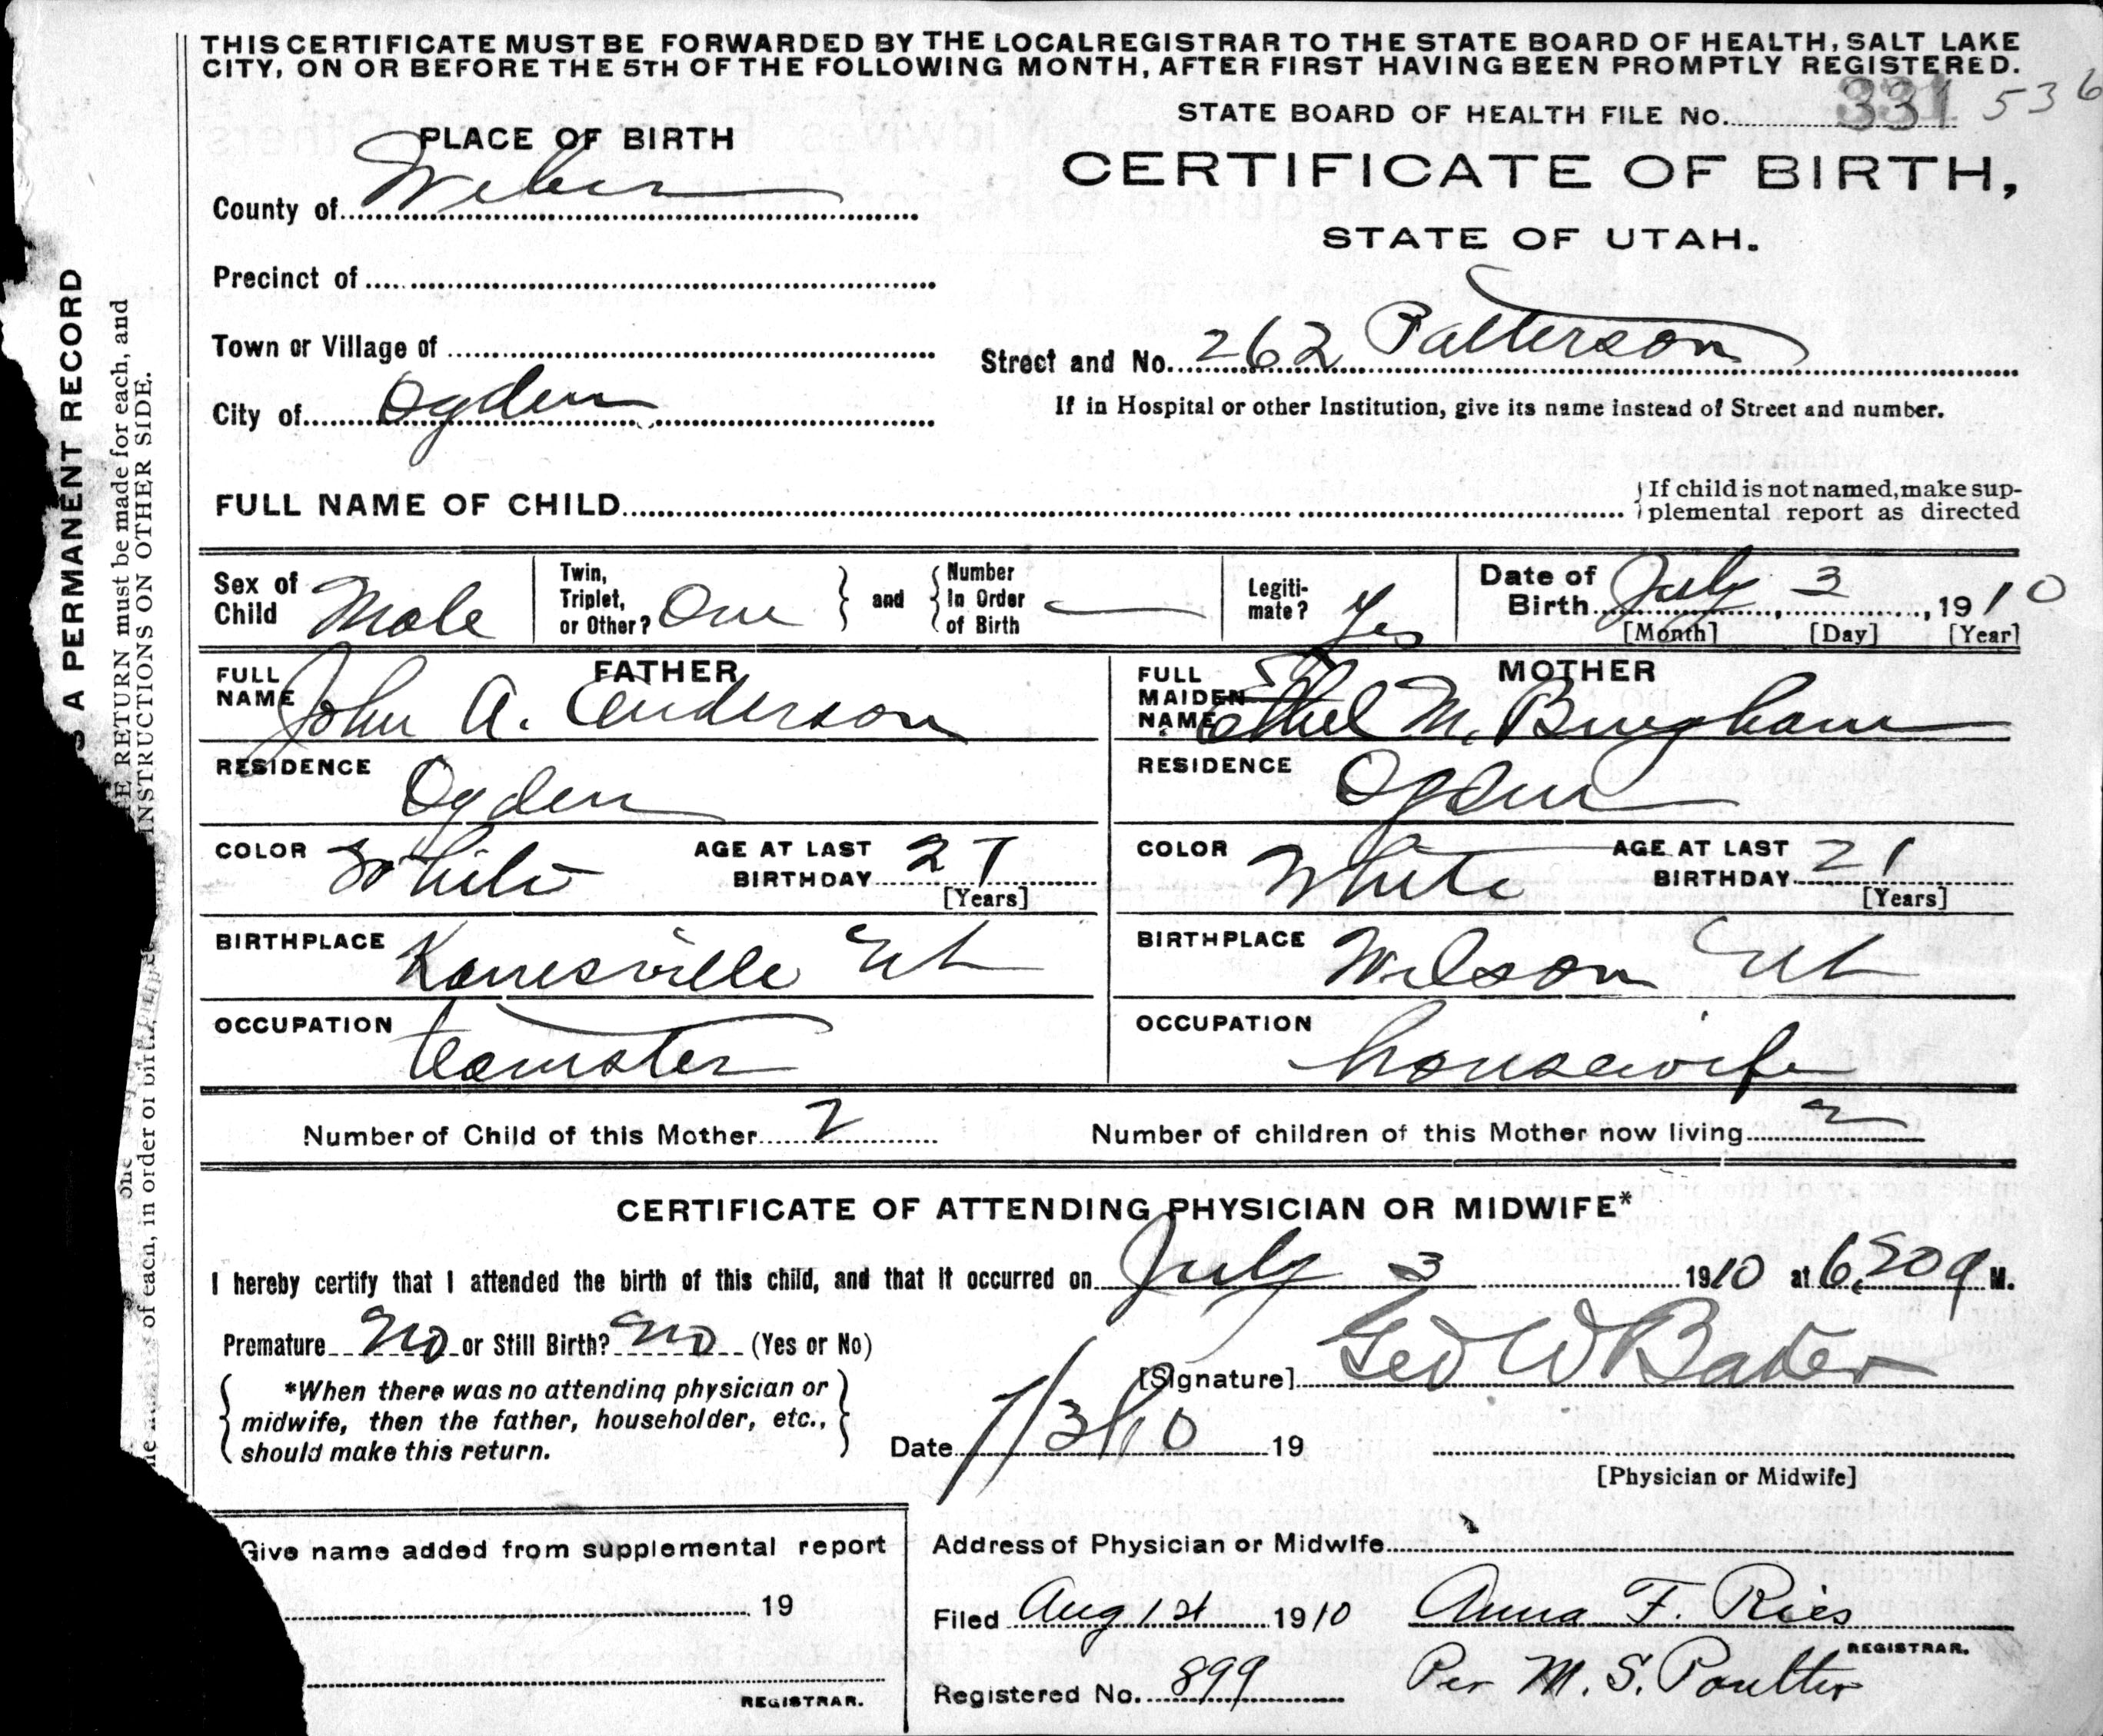 THIS CERTIFICATE MUST BE FORWARDED BY THE LOCAL REGISTRAR TO THE STATE BOARD OF HEALTH, SALT LAKE
CITY, ON OR BEFORE THE 5TH OF THE FOLLOWING MONTH, AFTER FIRST HAVING BEEN PROMPTLY REGISTERED.
STATE BOARD OF HEALTH FILE No. 331 536
PLACE OF BIRTH
CERTIFICATE OF BIRTH,
County of Weber
STATE OF UTAH.
Precinct of
Town or Village of
Street and No. 262 Patterson
City of Ogden
If in Hospital or other Institution, give its name instead of Street and number.
FULL NAME OF CHILD
If child is not named, make sup-
plemental report as directed
Sex of Child Male
Twin, Triplet, or Other? One and Number In Order of Birth —
Legiti-mate? Yes
Date of Birth July 3, 1910
[Month] [Day] [Year]
FATHER
FULL NAME John A. Anderson
MOTHER
FULL MAIDEN NAME Ethel M. Bingham
RESIDENCE Ogden
RESIDENCE Ogden
COLOR White AGE AT LAST BIRTHDAY 27 [Years]
COLOR White AGE AT LAST BIRTHDAY 21 [Years]
BIRTHPLACE Kanesville Ut
BIRTHPLACE Wilson Ut
OCCUPATION teamster
OCCUPATION housewife
Number of Child of this Mother 2 Number of children of this Mother now living 2
CERTIFICATE OF ATTENDING PHYSICIAN OR MIDWIFE*
I hereby certify that I attended the birth of this child, and that it occurred on July 3 1910 at M.
Premature No or Still Birth? No (Yes or No)
[Signature] Geo W Baker
*When there was no attending physician or
midwife, then the father, householder, etc.,
should make this return.
Date 7/3/10 19
[Physician or Midwife]
Give name added from supplemental report
19
REGISTRAR.
Address of Physician or Midwife
Filed Aug 1st 1910 Anna F. Ries
REGISTRAR.
Registered No. 899 Per M. S. Poulter
A PERMANENT RECORD
RETURN must be made for each, and
INSTRUCTIONS ON OTHER SIDE.
of each, in order of birth